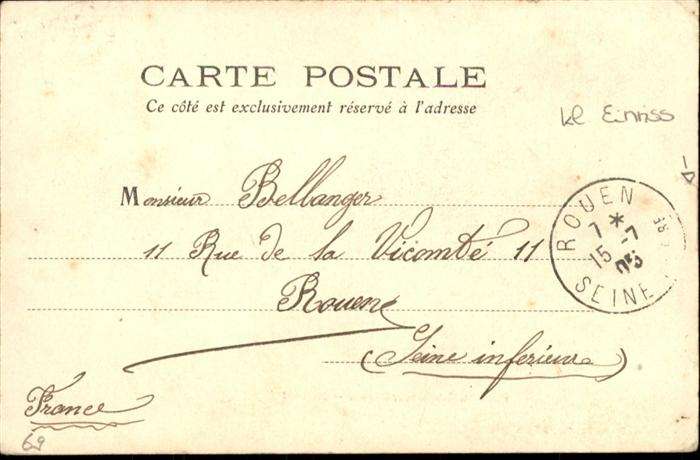 CARTE POSTALE
Ce côté est exclusivement réservé à l'adresse
kl Einriss
Monsieur Bellanger
11 Rue de la Vicomté 11
Rouen
(Seine inferieure)
France
69
ROUEN
7 *
15 -7
05
SEINE